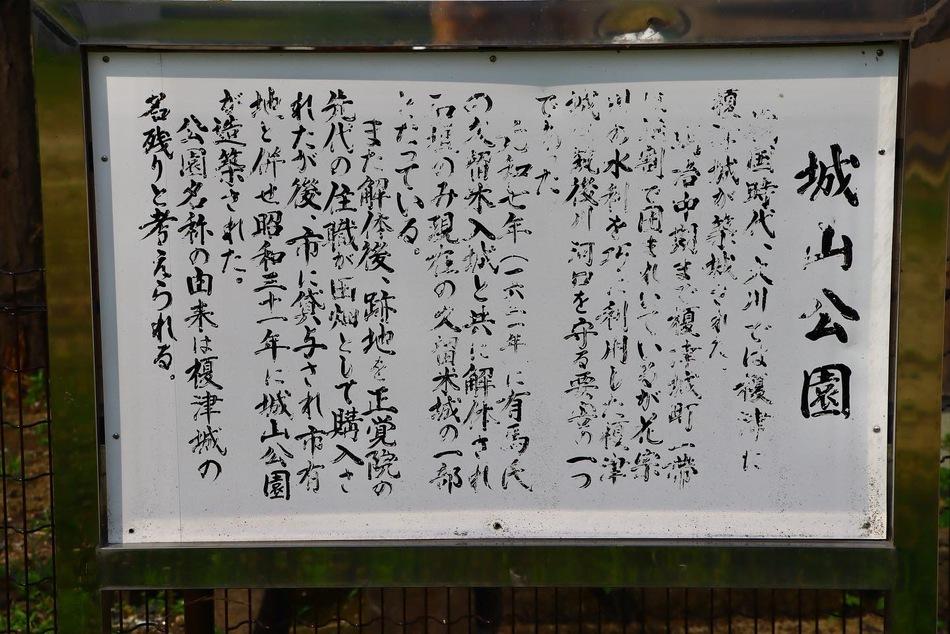 城山公園
戦国時代、大川では榎津に
榎津城が築城された
る。
堀割で囲まれていいるが花宗
川の水利を巧に利用した榎津
城は筑後川河口を守る要害の一つ
であった
元和七年(一六二一年)に有馬氏
の久留米入城と共に解体され
石垣のみ現在の久留米城の一部
となっている。
また解体後、跡地を正覚院の
先代の住職が田畑として購入さ
れたが後、市に貸与され市有
地と併せ昭和三十一年に城山公園
が造築された。
公園名称の由来は榎津城の
名残りと考えられる。